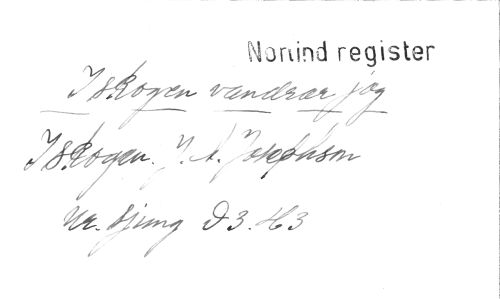 Nornind register
I skogen vandrar jag
I skogen. J. A. Josephson
Ur. Sjung D 3. H 3